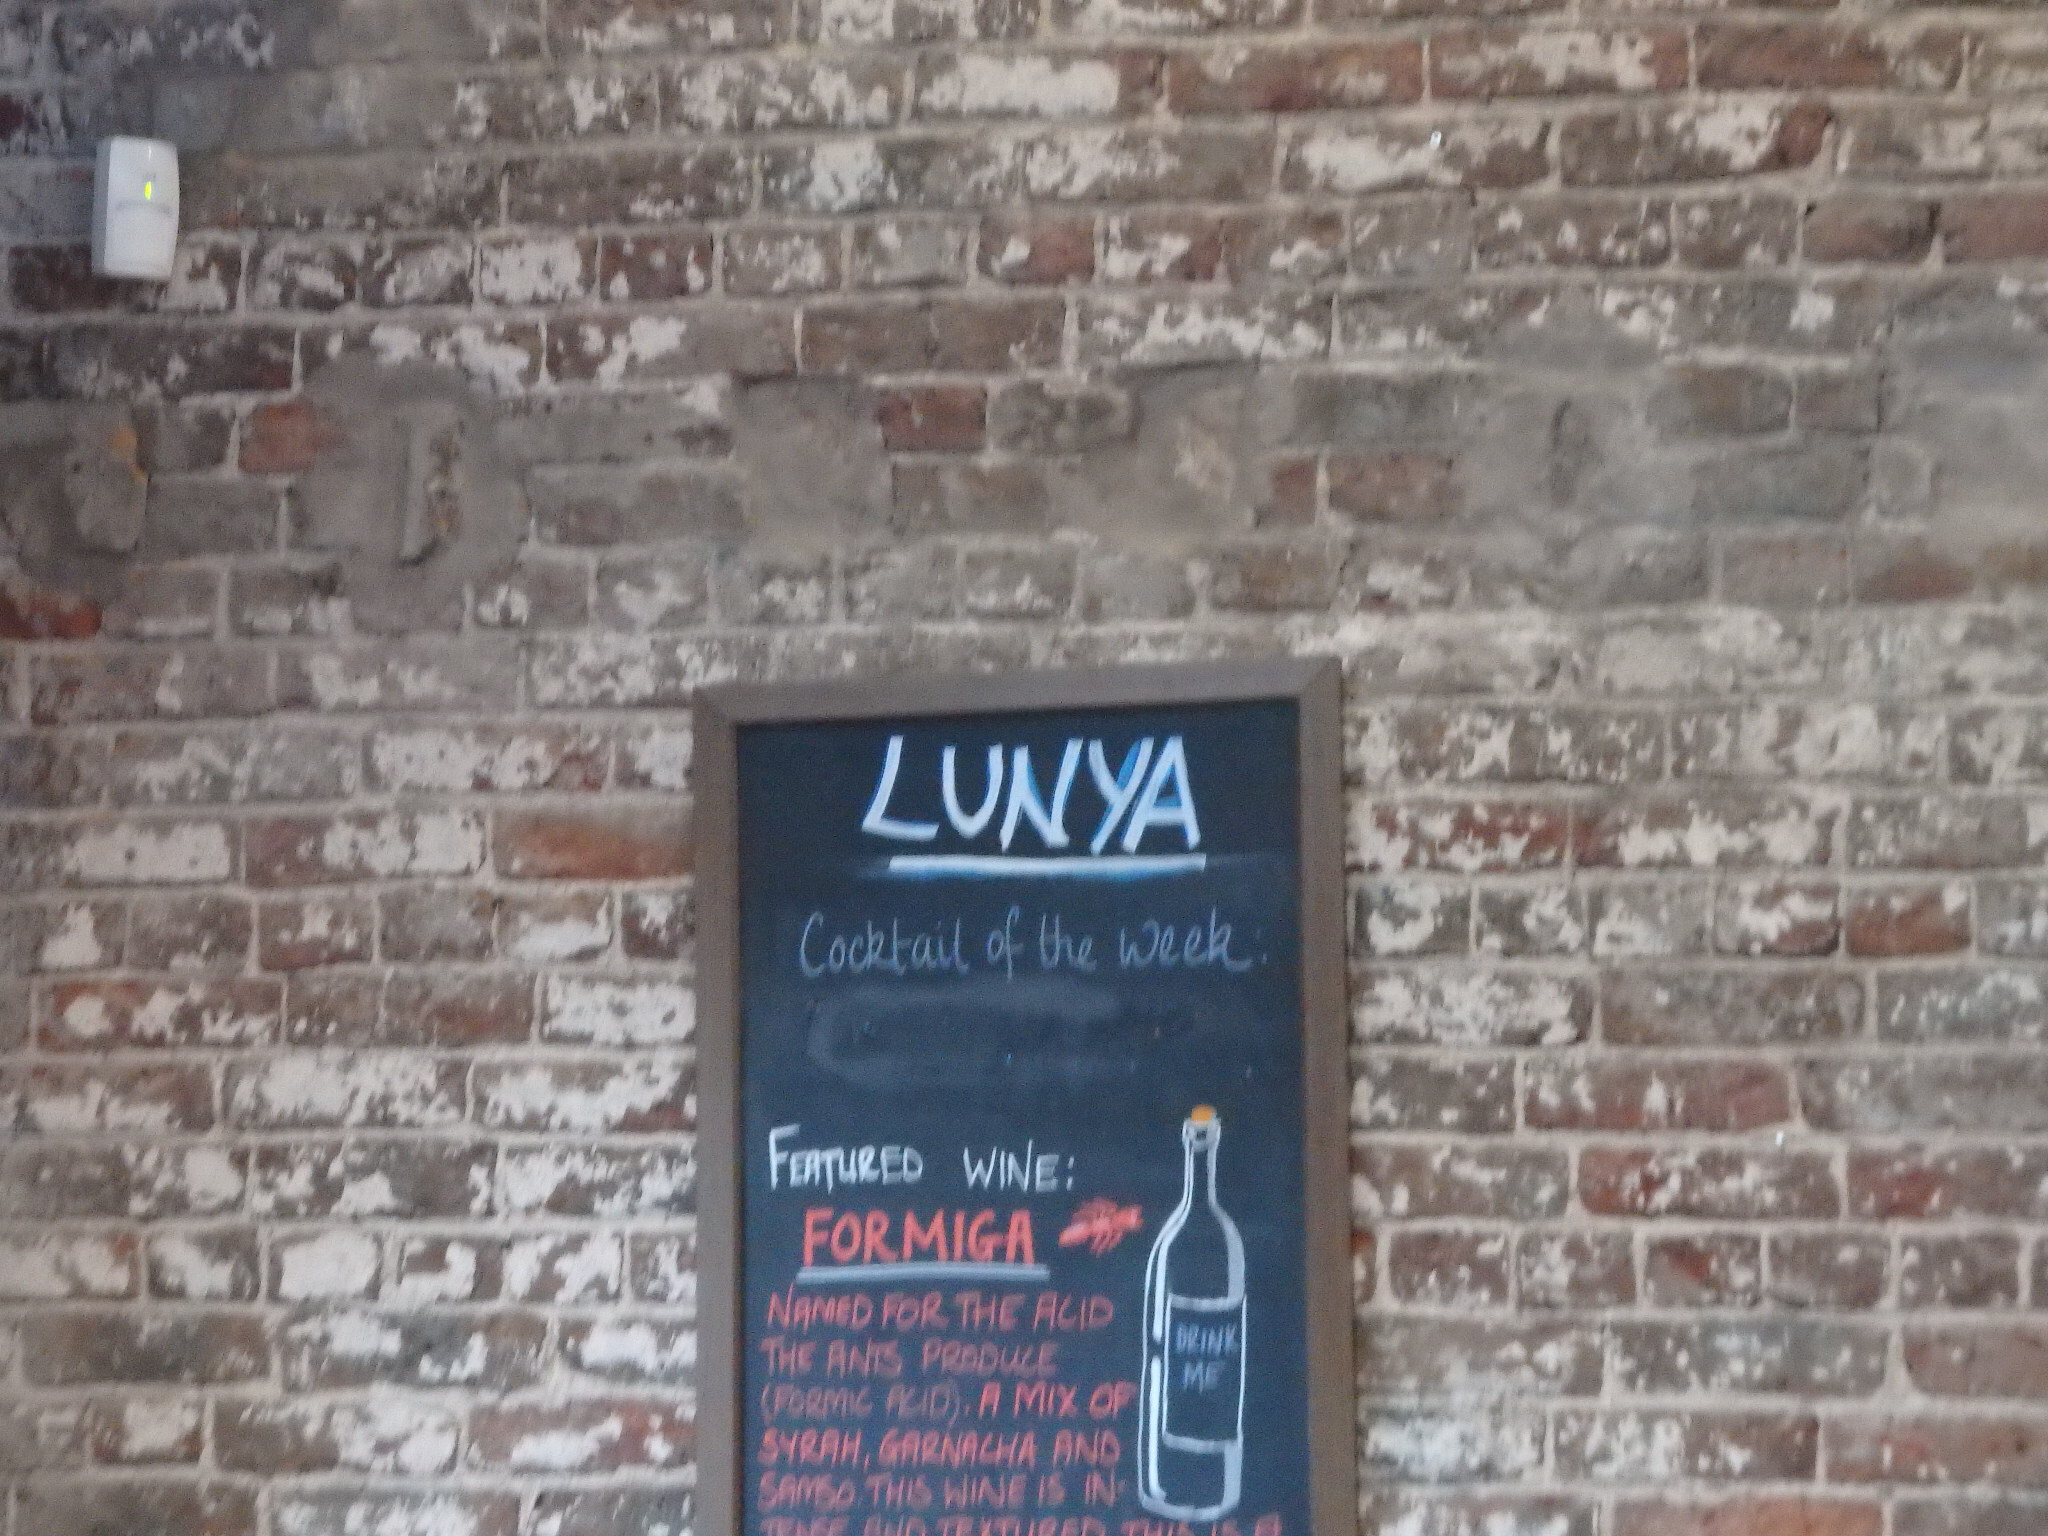 LUNYA
Cocktail of the week:
FEATURED WINE:
FORMIGA
NAMED FOR THE ACID
THE ANTS PRODUCE
(FORMIC ACID). A MIX OF
SYRAH, GARNACHA AND
SAMSO. THIS WINE IS IN-
TENSE AND TEXTURED. THIS IS A
DRINK
ME